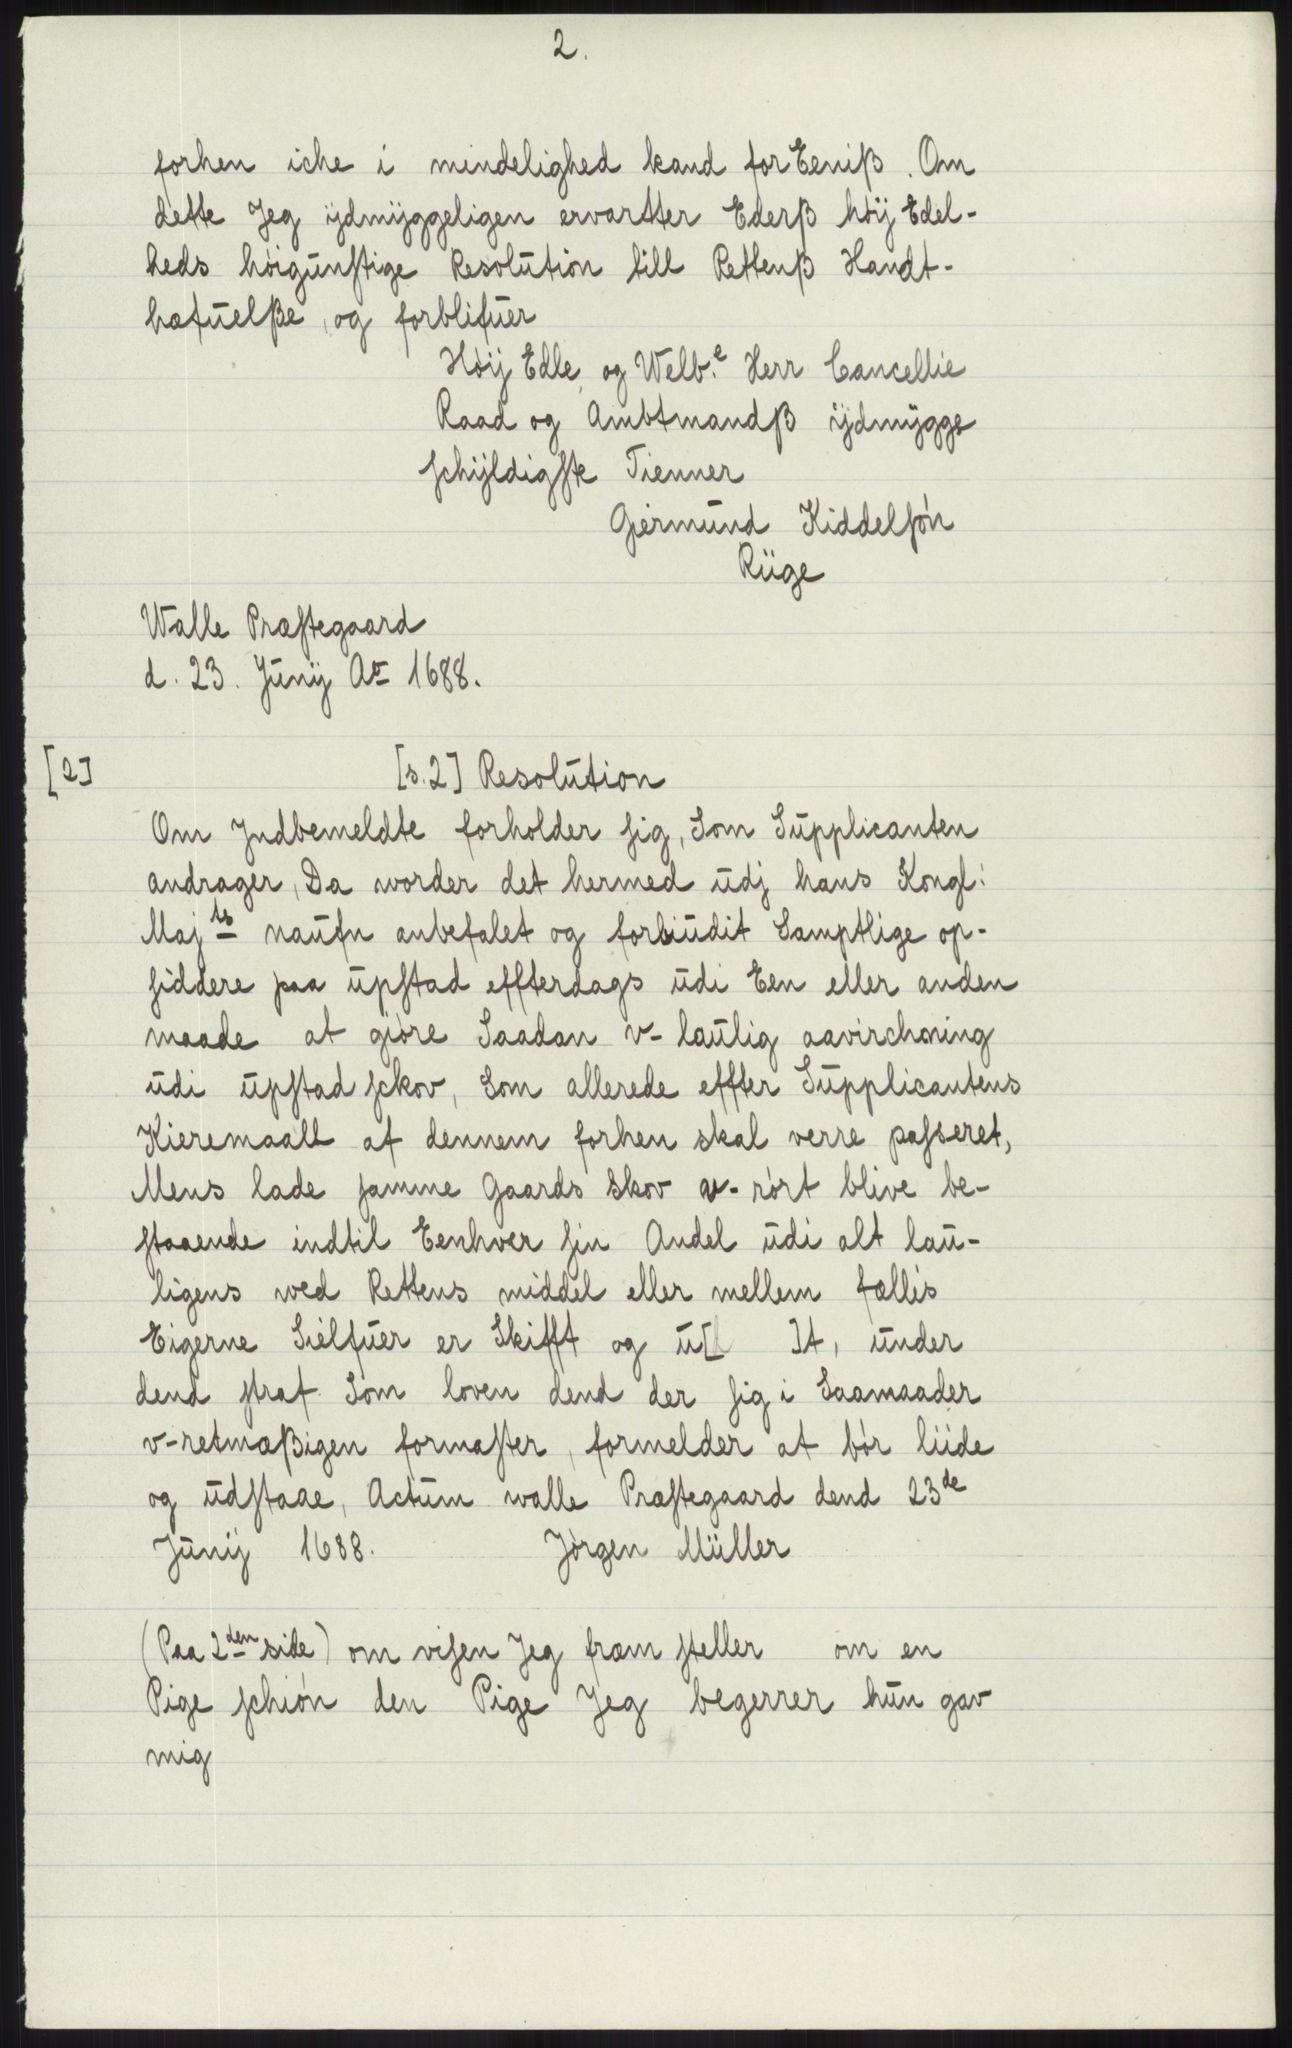 2.
forhen iche i mindelighed kand for Eeniß. Om
dette Jeg ÿdmÿggeligen ervartter Ederß høÿ Edel-
heds høigunstige Resolution till Rettenß Handt-
hæfuelße, og forblifuer
Høÿ Edle og Welb.e Herr Cancellie
Raad og Ambtmandß ÿdmÿgge
schÿldigste Tienner
Giermund Kiddelsøn
Rüge
Walle Præstegaard
d. 23. Junÿ Ao 1688.
[2] [s.2] Resolution
Om Jndbemeldte forholder sig, Som Supplicanten
andrager, Da worder det hermed udj hans Kongl:
Majts naufn anbefalet og forbiudit Samptlige op-
siddere paa upstad effterdags udi Een eller anden
maade at giøre Saadan v-laulig aavirchning
udi upstad sckov, Som allerede effter Supplicantens
Kieremaall af dennem forhen skal verre passeret,
Mens lade samme Gaards Skov v-rørt blive be-
staaende indtil Eenhver sin Andel udi alt lau-
ligens wed Rettens middel eller mellem fællis
Eigerne Sielfuer er Skifft og u[ ]t, under
dend straf Som loven dend der sig i Saamaader
v-retmæßigen formaster, formelder at bør liide
og udstaae, Actum walle Præstegaard dend 23de
Junÿ 1688. Jørgen Müller
(Paa 2den side) om visen Jeg fram steller om en
Pige schiøn den Pige Jeg begerrer hun gav
mig